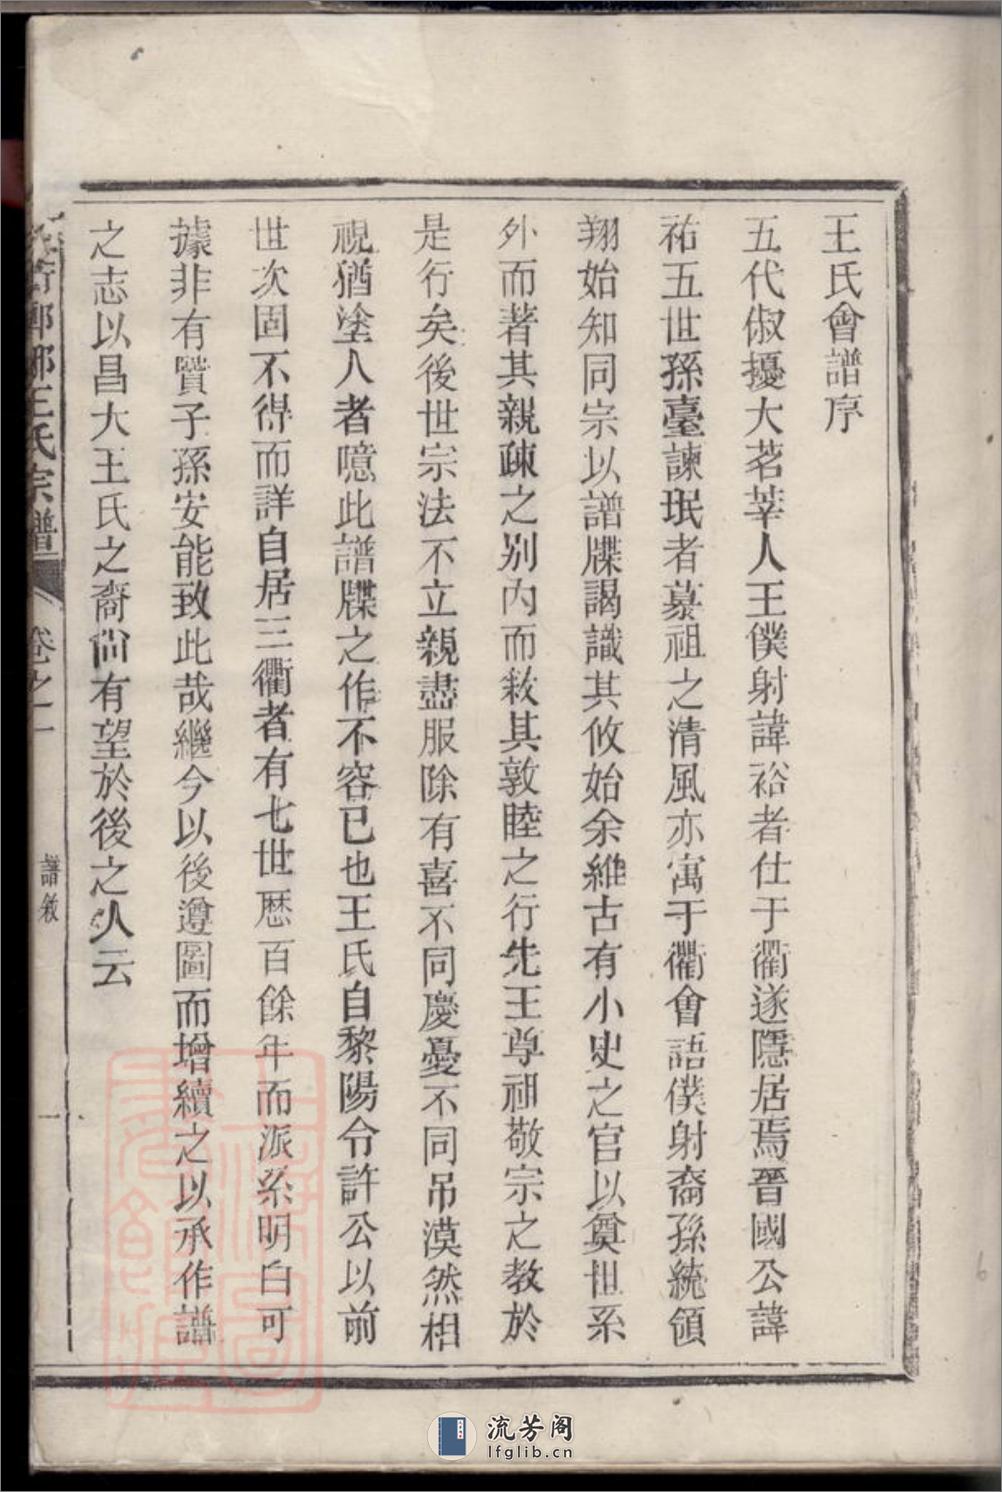 王氏會譜序
五代俶擾大茗莘人王僕射諱裕者仕于衢遂隱居焉晉國公諱
祐五世孫臺諫珉者慕祖之清風亦寓于衢會語僕射裔孫統領
翔始知同宗以譜牒謁識其攸始余維古有小史之官以奠世系
外而著其親疎之别內而敘其敦睦之行先王尊祖敬宗之教於
是行矣後世宗法不立親盡服除有喜不同慶憂不同吊漠然相
視猶塗人者噫此譜牒之作不容已也王氏自黎陽令許公以前
世次固不得而詳自居三衢者有七世歷百餘年而派系明白可
據非有賢子孫安能致此哉繼今以後遵圖而增續之以承作譜
之志以昌大王氏之裔尙有望於後之人云
琊王氏宗譜
卷之一
譜敘
一
流芳阁
lfglib.cn